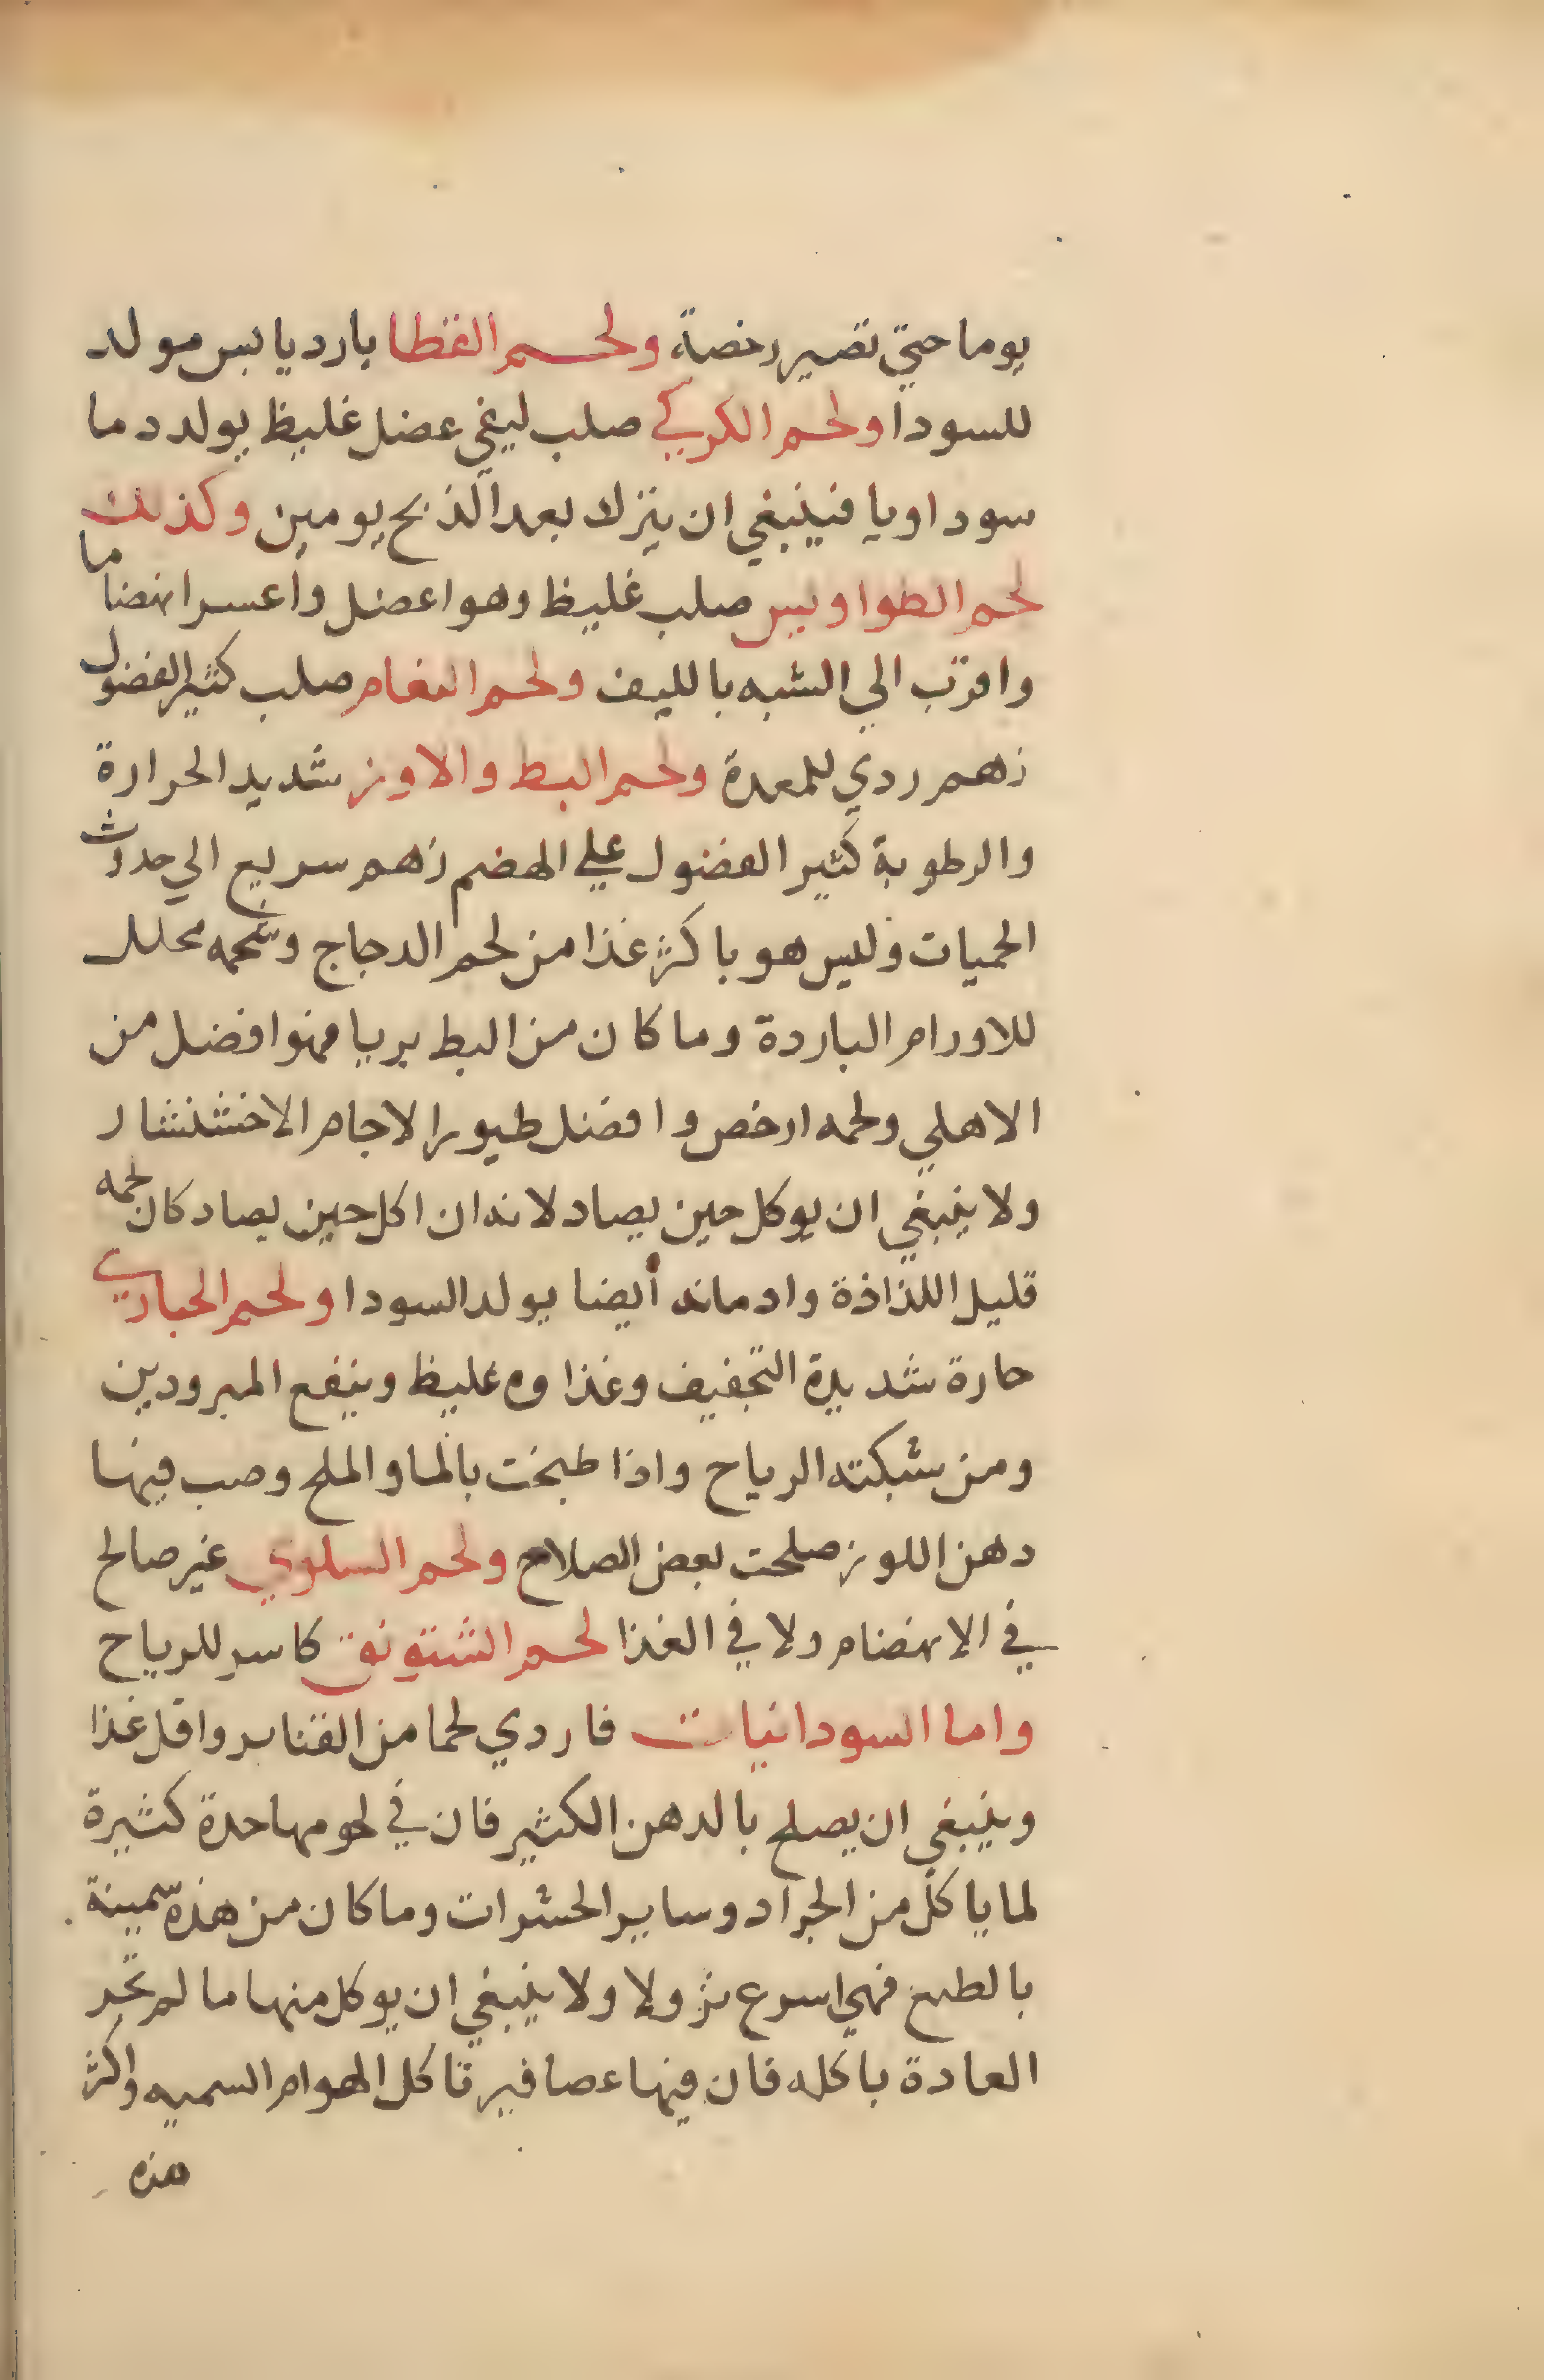 يوما حتي تصير رخصة ولحم القطا بارد يابس مولد
للسودا ولحم الكركي صلب ليفي عضل غليظ يولد دما
سوداويا فينبغي ان يترك بعد الذبح يومين وكذلك
لحم الطواويس صلب غليظ وهو اعضل واعسر انهضاما
واقرب الي الشبه بالليف ولحم النعام صلب كثير الفضول
زهم ردي للمعدة ولحم البط والاوز شديد الحرارة
والرطوبة كثير الفضول علي الهضم زهم سريع الي حدوث
الحميات وليس هو باكثر غذا من لحم الدجاج وشحمه محلل
للاورام الباردة وما كان من البط بريا فهوا فضل من
الاهلي ولحمه ارخص وافضل طيور الاجام الاخشنشار
ولا ينبغي ان يوكل حين يصاد لانه ان اكل حين يصاد كان لحمه
قليل اللذاذة وادمانه أيضا يولد السودا ولحم الحباري
حارة شديدة التجفيف وغذاوه غليظ وينفع المبرودين
ومن شبكته الرياح واذا طبخت بالما والملح وصب فيها
دهن اللوز صلحت بعض الصلاح ولحم السلوي غير صالح
في الانهضام ولا في الغذا لحم الشتونق كاسر للرياح
واما السودانيات فاردي لحما من القنابر واقل غذا
وينبغي ان يصلح بالدهن الكثير فان في لحومها حدة كثيرة
لما ياكل من الجراد وساير الحشرات وما كان من هذه سمينة
بالطبع فهي اسرع نزولا ولا ينبغي ان يوكل منها ما لم تجر
العادة باكله فان فيها عصافير تاكل الهوام السميه واكثر
هذه